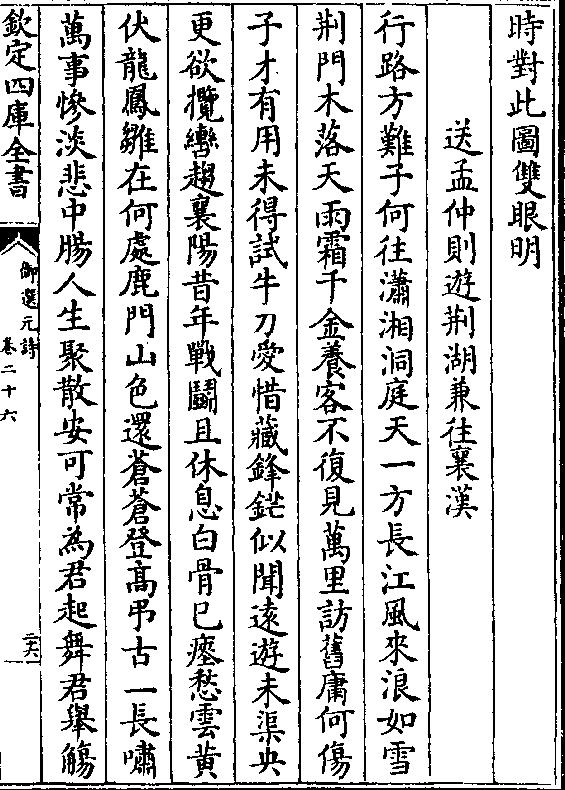 時對此圖雙眼明
送孟仲則遊荆湖兼往襄漢
行路方難子何往瀟湘洞庭天一方長江風來浪如雪
荆門木落天雨霜千金養客不復見萬里訪舊庸何傷
子才有用未得試牛刀愛惜藏鋒鋩似聞逺遊未渠央
更欲攬轡趨襄陽昔年戰鬭且休息白骨已瘞愁雲黄
伏龍鳳雛在何處鹿門山色還蒼蒼登髙弔古一長嘯
萬事慘淡悲中腸人生聚散安可常為君起舞君舉觴
欽定四庫全書
御選元詩
卷二十六
二六